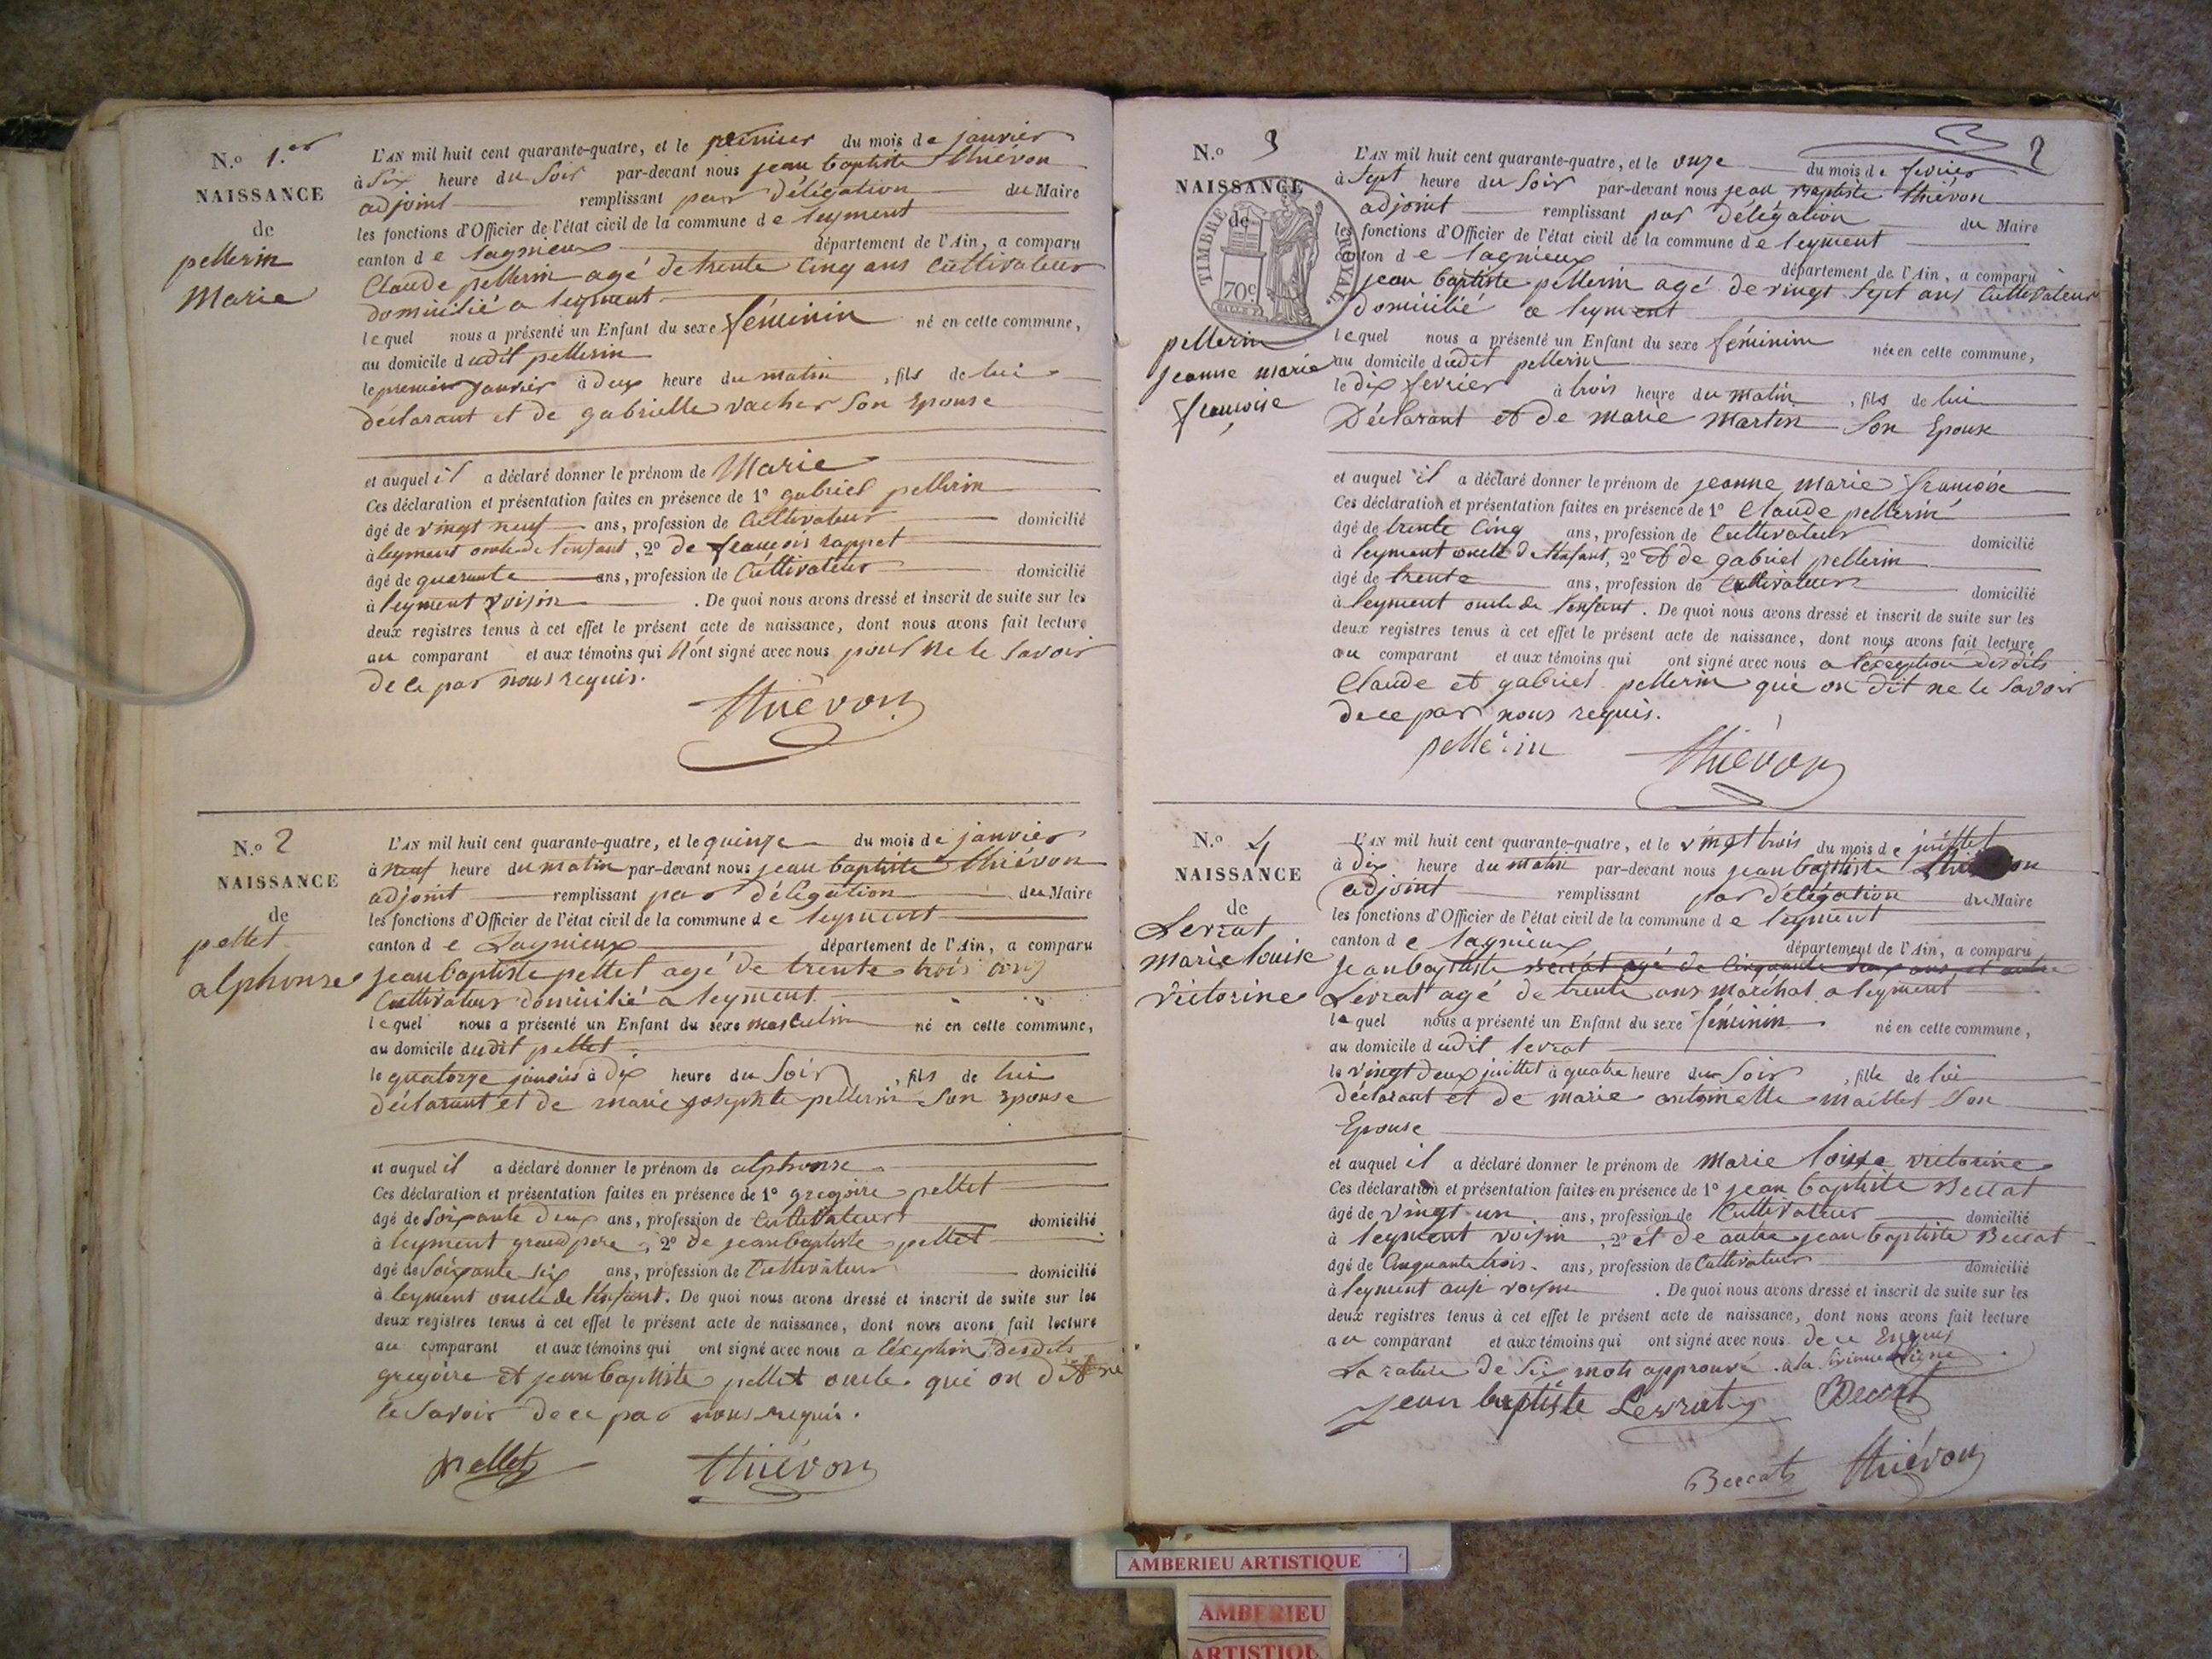 N.o 1.er
NAISSANCE
de
pellerin
Marie
L'AN mil huit cent quarante-quatre, et le premier du mois de janvier
à Six heure du Soir par-devant nous jean baptiste thiévon
adjoint remplissant par délégation du Maire
les fonctions d'Officier de l'état civil de la commune de leyment
canton de lagnieux département de l'Ain, a comparu
Claude pellerin agé de trente Cinq ans Cultivateur
domicilié a leyment
lequel nous a présenté un Enfant du sexe féminin né en cette commune,
au domicile dudit pellerin
le premier janvier à deux heure du matin, fils de lui
déclarant et de gabrielle vacher Son Epouse
et auquel il a déclaré donner le prénom de Marie
Ces déclaration et présentation faites en présence de 1° gabriel pellerin
âgé de vingt neuf ans, profession de Cultivateur domicilié
à leyment oncle de l'enfant, 2° de francois rappet
âgé de quarante ans, profession de Cultivateur domicilié
à leyment voisin. De quoi nous avons dressé et inscrit de suite sur les
deux registres tenus à cet effet le présent acte de naissance, dont nous avons fait lecture
au comparant et aux témoins qui N'ont signé avec nous pour ne le Savoir
de ce par nous requis.
thiévon
N.o 2
NAISSANCE
de
pellet
alphonse
L'AN mil huit cent quarante-quatre, et le quinze du mois de janvier
à neuf heure du matin par-devant nous jean baptiste thiévon
adjoint remplissant par délégation du Maire
les fonctions d'Officier de l'état civil de la commune de leyment
canton de Lagnieux département de l'Ain, a comparu
jean baptiste pellet agé de trente trois ans
Cultivateur domicilié a leyment
lequel nous a présenté un Enfant du sexe masculin né en cette commune,
au domicile dudit pellet
le quatorze janvier à dix heure du Soir, fils de lui
déclarant et de marie josephte pellerin Son Epouse
et auquel il a déclaré donner le prénom de alphonse
Ces déclaration et présentation faites en présence de 1° gregoire pellet
âgé de Soixante deux ans, profession de Cultivateur domicilié
à leyment grand pere, 2° de jean baptiste pellet
âgé de Soixante six ans, profession de Cultivateur domicilié
à leyment oncle de l'enfant. De quoi nous avons dressé et inscrit de suite sur les
deux registres tenus à cet effet le présent acte de naissance, dont nous avons fait lecture
au comparant et aux témoins qui ont signé avec nous a l'éception desdits
gregoire et jean baptiste pellet oncle qui on dit ne
le Savoir de ce par nous requis.
pellet thiévon
2
N.o 3
NAISSANCE
de
TIMBRE ROYAL
70c
pellerin
jeanne marie
francoise
L'AN mil huit cent quarante-quatre, et le onze du mois de fevrier
à Sept heure du Soir par-devant nous jean baptiste thiévon
adjoint remplissant par délégation du Maire
les fonctions d'Officier de l'état civil de la commune de leyment
canton de lagnieux département de l'Ain, a comparu
jean baptiste pellerin agé de vingt Sept ans Cultivateur
domicilié a leyment
lequel nous a présenté un Enfant du sexe féminin née en cette commune,
au domicile dudit pellerin
le dix fevrier à trois heure du matin, fils de lui
Déclarant et de marie martin Son Epouse
et auquel il a déclaré donner le prénom de jeanne marie francoise
Ces déclaration et présentation faites en présence de 1° Claude pellerin
âgé de trente Cinq ans, profession de Cultivateur domicilié
à leyment oncle de l'enfant, 2° et de gabriel pellerin
âgé de trente ans, profession de Cultivateur domicilié
à leyment oncle de l'enfant. De quoi nous avons dressé et inscrit de suite sur les
deux registres tenus à cet effet le présent acte de naissance, dont nous avons fait lecture
au comparant et aux témoins qui ont signé avec nous a l'exception desdits
Claude et gabriel pellerin qui on dit ne le Savoir
de ce par nous requis.
pellerin thiévon
N.o 4
NAISSANCE
de
Levrat
marie louise
victorine
L'AN mil huit cent quarante-quatre, et le vingt trois du mois de juillet
à dix heure du matin par-devant nous jean baptiste thiévon
adjoint remplissant par délégation du Maire
les fonctions d'Officier de l'état civil de la commune de leyment
canton de lagnieux département de l'Ain, a comparu
jean baptiste Beccat agé de Cinquante deux ans et autre
Levrat agé de trente ans maréchal a leyment
lequel nous a présenté un Enfant du sexe féminin né en cette commune,
au domicile dudit levrat
le vingt deux juillet à quatre heure du Soir, fille de lui
déclarant et de marie antoinette maillet Son
Epouse
et auquel il a déclaré donner le prénom de marie loise victorine
Ces déclaration et présentation faites en présence de 1° jean baptiste Beccat
âgé de vingt un ans, profession de Cultivateur domicilié
à leyment voisin, 2° et de autre jean baptiste Beccat
âgé de Cinquante trois ans, profession de Cultivateur domicilié
à leyment ausi voisin. De quoi nous avons dressé et inscrit de suite sur les
deux registres tenus à cet effet le présent acte de naissance, dont nous avons fait lecture
au comparant et aux témoins qui ont signé avec nous de ce Enquis
La rature de Six mots approuvé a la Sixieme ligne
jean baptiste Levrat Beccat
Beccat thiévon
AMBERIEU ARTISTIQUE
AMBERIEU
ARTISTIQU